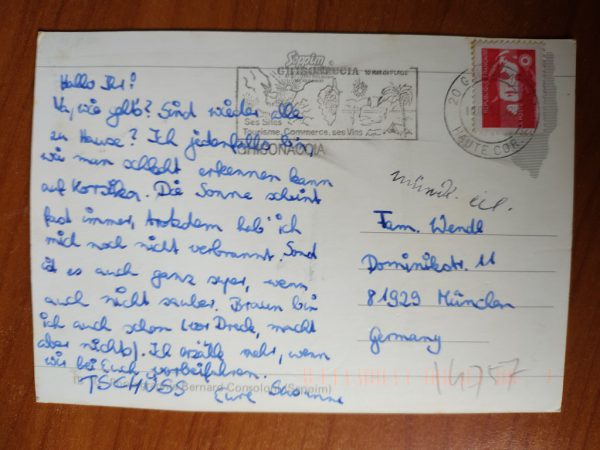 Hallo Ihr!
Na, wie geht's? Sind wieder alle
zu Hause? Ich jedenfalls bin,
wie man schlecht erkennen kann
auf Korsika. Die Sonne scheint
fast immer, trotzdem hab' ich
mich noch nicht verbrannt. Sonst
ist es auch ganz super, wenn
auch nicht sauber. Braun bin
ich auch schon (vor Dreck, macht
aber nichts). Ich erzähle mehr, wenn
wir bei Euch vorbeifahren.
TSCHÜSS Eure
Seppim
GHISONACCIA
Ses Sites
Tourisme, Commerce, ses Vins
GHISONACCIA
20
HAUTE COR
Fam. Wendl
Dominikstr. 11
81929 München
Germany
14757
Bernard Consolo (Seppim)